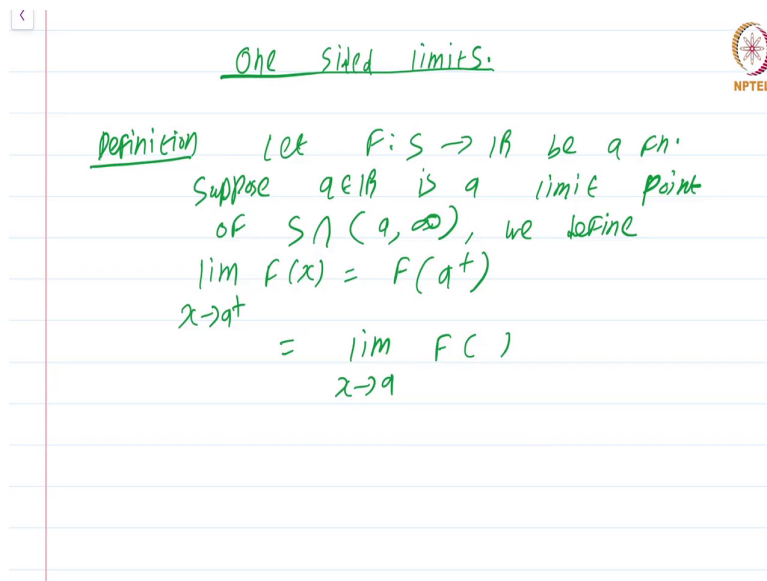 One sided limits.
NPTEL
Definition Let F: S → ℝ be a fn.
Suppose a ∈ ℝ is a limit point
of S ∩ (a, ∞), we define
lim F(x) = F(a⁺)
x→a⁺
= lim F( )
x→a